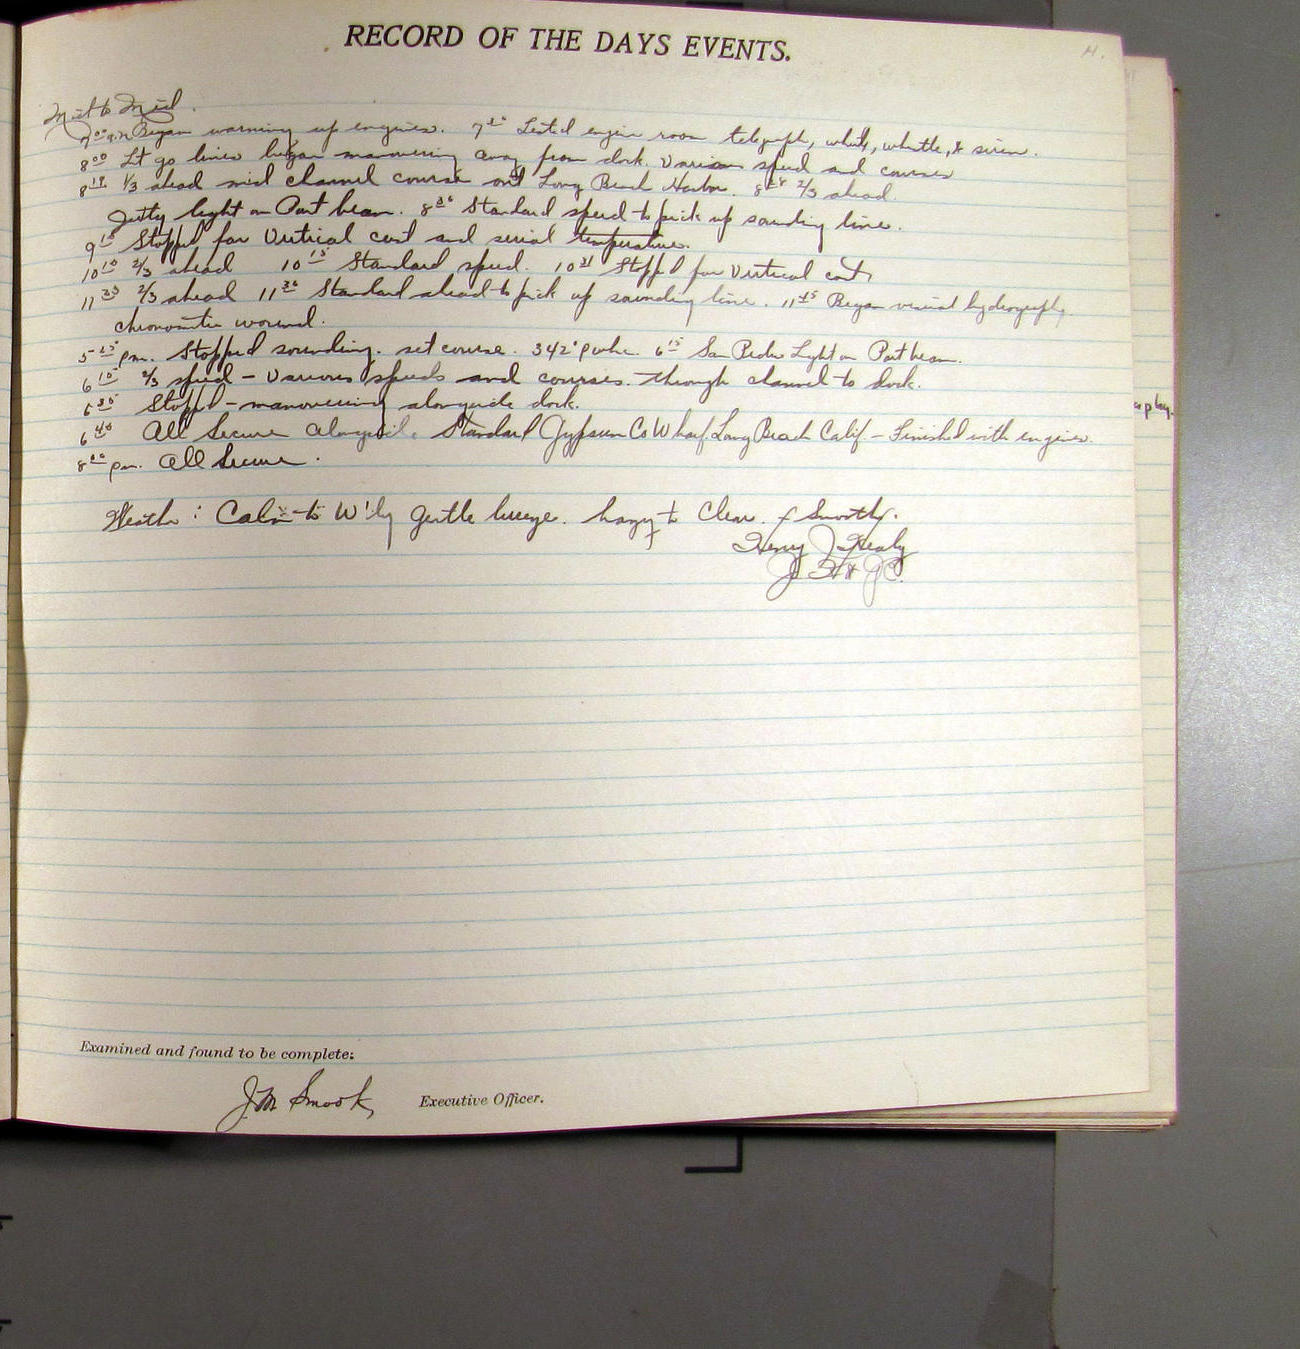 RECORD OF THE DAYS EVENTS.
Mid to Mid.
7 00 a.m Began warming up engines. 7 30 Tested engine room telegraph, whistle, & siren.
8 00 Let go lines began manouvering away from dock. Various speed and courses
8 18 1/3 ahead mid channel course out Long Beach Harbor. 8 28 2/3 ahead.
Jetty light on Port beam. 8 36 Standard speed to pick up sounding line.
9 15 Stopped for Vertical cast and serial temperature.
10 10 2/3 ahead 10 15 Standard speed. 10 31 Stopped for Vertical cast,
11 33 2/3 ahead 11 36 Standard ahead to pick up sounding line. 11 45 Began visual hydrography,
chronometer wound.
5 25 pm. Stopped sounding. set course. 342° 6 15 San Pedro Light on Port beam.
6 18 2/3 speed - Various speeds and courses. through channel to dock.
6 35 Stopped - manouvering alongside dock.
6 40 All Secure alongside Standard Gypsum Co Wharf. Long Beach Calif - Finished with engines.
8 00 pm. All Secure.
Weather : Calm to W'ly gentle breeze. hazy to Clear. Smooth.
Henry J. Healy
Examined and found to be complete:
J M Smook, Executive Officer.